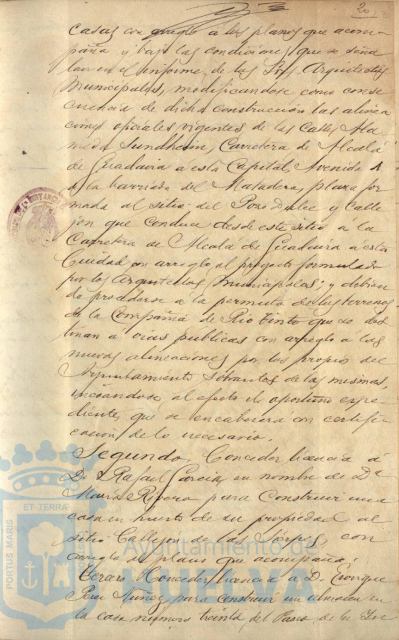 20
casas con arreglo a los planos que acom-
paña y bajo las condiciones que se seña
lan en el informe de los Srs. Arquitectos
Municipales, modificandose como conse
cuencia de dicha construccion las alinea
ciones oficiales vigentes de las Calles Ala
meda Sundheim, Carretera de Alcalá
de Guadaira a esta Capital, Avenida A
a la barriada del Matadero, plaza for
mada al sitio del Pozo dulce y Calle
jon que conduce desde este sitio a la
Carretera de Alcalá de Guadaira a esta
Ciudad con arreglo al proyecto formulado
por los Arquitectos Municipales; y debien
do procederse a la permuta de los terrenos
de la Compañia de Rio Tinto que se des
tinan a vias publicas con arreglo a las
nuevas alineaciones, por los propios del
Ayuntamiento sobrantes de las mismas,
incoandose al efecto el oportuno expe
diente, que se encabezará con certifi-
cacion de lo necesario.
Segundo. Conceder licencia á
D. Rafael Garcia, en nombre de Dª
Maria Rivero para construir una
casa en huerto de su propiedad al
sitio Callejon de las con
arreglo al plano que acompaña.
Tercero. Conceder licencia a D. Enrique
Nuñez, para construir un almacen en
la casa número treinta del Paseo de la
PORTUS MARIS
ET TERRÆ
Ayuntamiento de